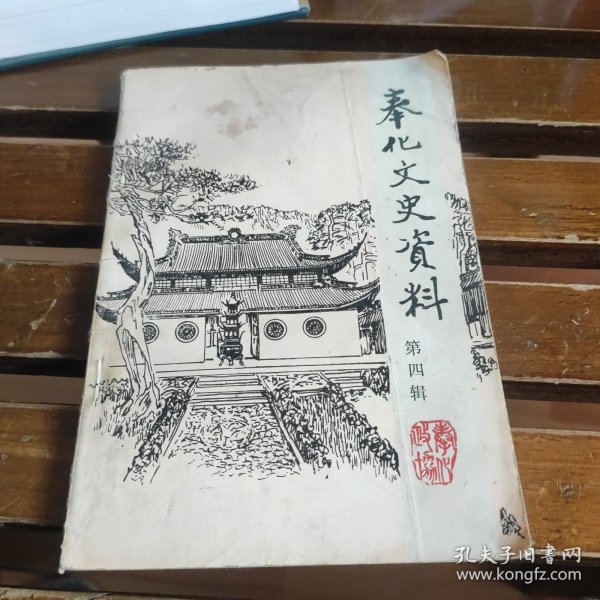 奉化文史資料
第四辑
奉化
政协
孔夫子旧书网
www.kongfz.com